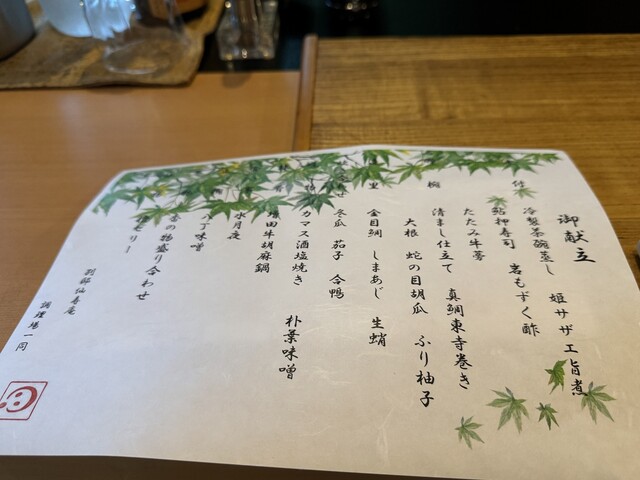 御献立
冷製茶碗蒸し 姫サザエ旨煮
鮎押寿司 岩もずく酢
たたみ牛蒡
椀
清まし仕立て 真鯛東寺巻き
大根 蛇の目胡瓜 ふり柚子
里
金目鯛 しまあじ 生蛸
冬瓜 茄子 合鴨
カマス酒塩焼き 朴葉味噌
田牛胡麻鍋
水月夜
八丁味噌
の物盛り合わせ
ゼリー
別邸仙寿庵
調理場一同